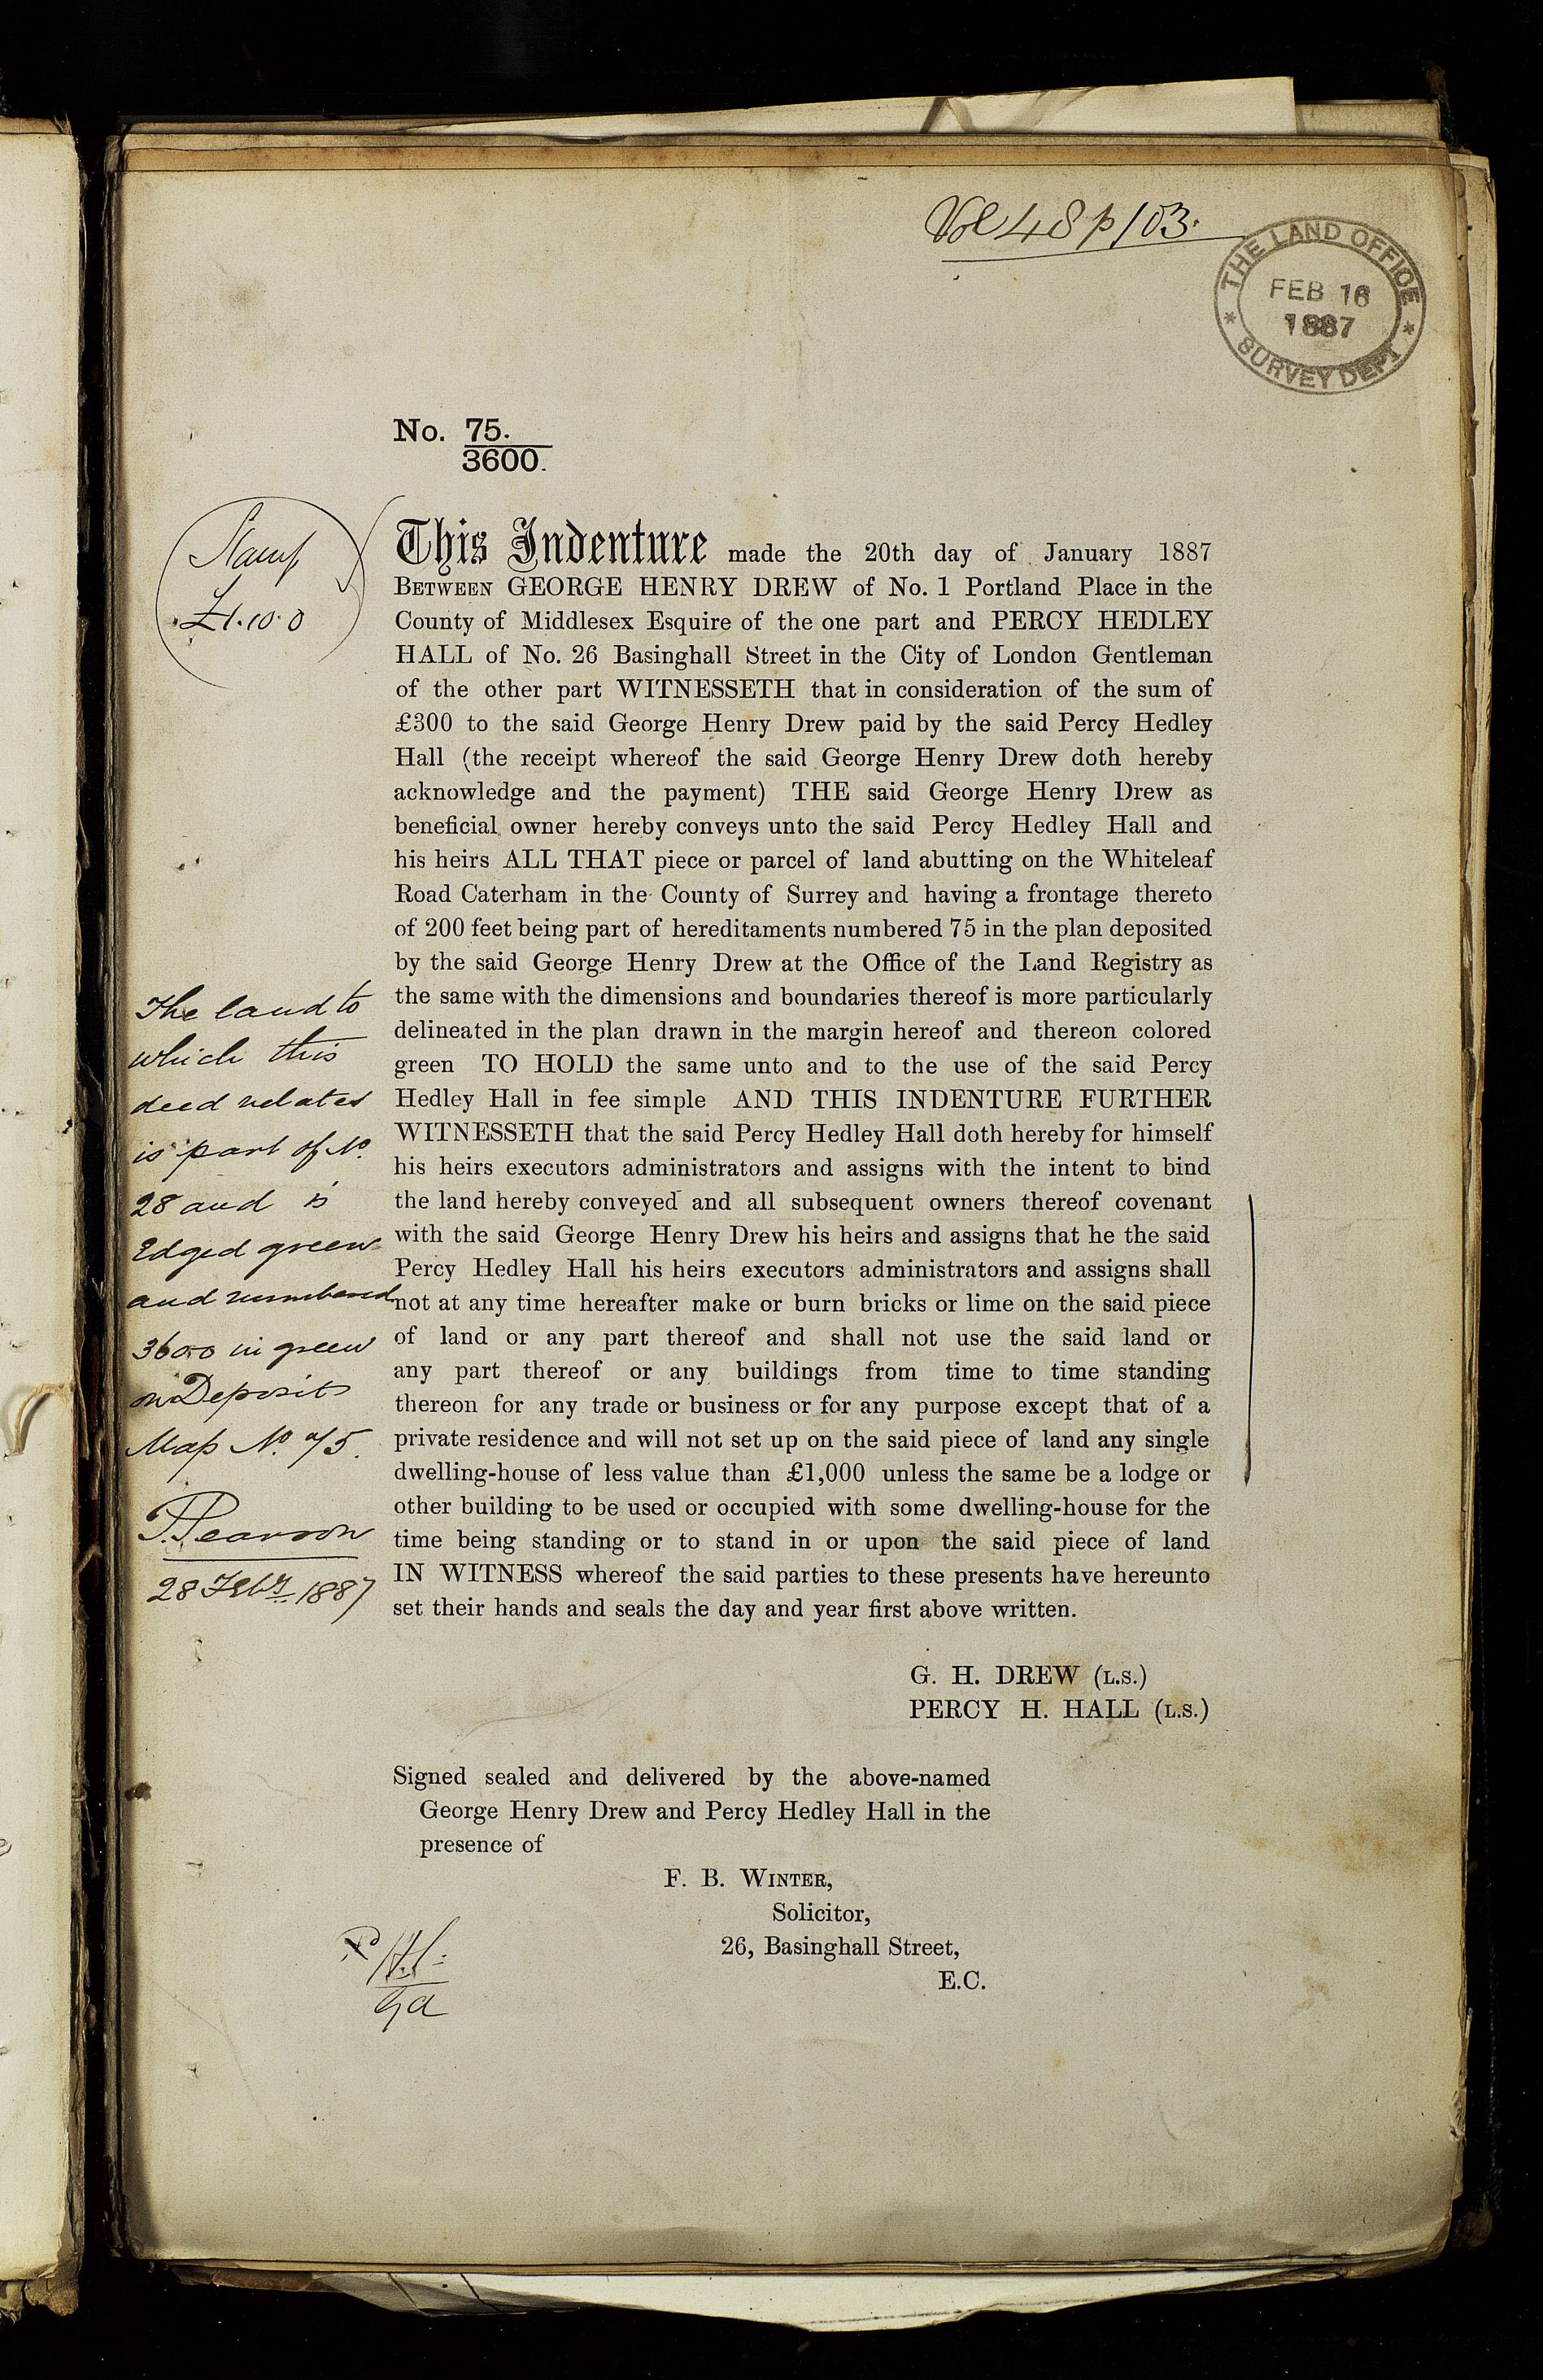 Vol 48 p 103.
THE LAND OFFICE
FEB 16
1887
SURVEY DEPT
No. 75.
3600.
Stamp
£1.10.0
This Indenture made the 20th day of January 1887
BETWEEN GEORGE HENRY DREW of No. 1 Portland Place in the
County of Middlesex Esquire of the one part and PERCY HEDLEY
HALL of No. 26 Basinghall Street in the City of London Gentleman
of the other part WITNESSETH that in consideration of the sum of
£300 to the said George Henry Drew paid by the said Percy Hedley
Hall (the receipt whereof the said George Henry Drew doth hereby
acknowledge and the payment) THE said George Henry Drew as
beneficial owner hereby conveys unto the said Percy Hedley Hall and
his heirs ALL THAT piece or parcel of land abutting on the Whiteleaf
Road Caterham in the County of Surrey and having a frontage thereto
of 200 feet being part of hereditaments numbered 75 in the plan deposited
by the said George Henry Drew at the Office of the Land Registry as
the same with the dimensions and boundaries thereof is more particularly
delineated in the plan drawn in the margin hereof and thereon colored
green TO HOLD the same unto and to the use of the said Percy
Hedley Hall in fee simple AND THIS INDENTURE FURTHER
WITNESSETH that the said Percy Hedley Hall doth hereby for himself
his heirs executors administrators and assigns with the intent to bind
the land hereby conveyed and all subsequent owners thereof covenant
with the said George Henry Drew his heirs and assigns that he the said
Percy Hedley Hall his heirs executors administrators and assigns shall
not at any time hereafter make or burn bricks or lime on the said piece
of land or any part thereof and shall not use the said land or
any part thereof or any buildings from time to time standing
thereon for any trade or business or for any purpose except that of a
private residence and will not set up on the said piece of land any single
dwelling-house of less value than £1,000 unless the same be a lodge or
other building to be used or occupied with some dwelling-house for the
time being standing or to stand in or upon the said piece of land
IN WITNESS whereof the said parties to these presents have hereunto
set their hands and seals the day and year first above written.
The land to
which this
deed relates
is part of No.
28 and is
Edged green
and numbered
3600 in green
on Deposit
Map No. 75.
T. Pearson
28 Feby. 1887
G. H. DREW (L.S.)
PERCY H. HALL (L.S.)
Signed sealed and delivered by the above-named
George Henry Drew and Percy Hedley Hall in the
presence of
F. B. WINTER,
Solicitor,
26, Basinghall Street,
E.C.